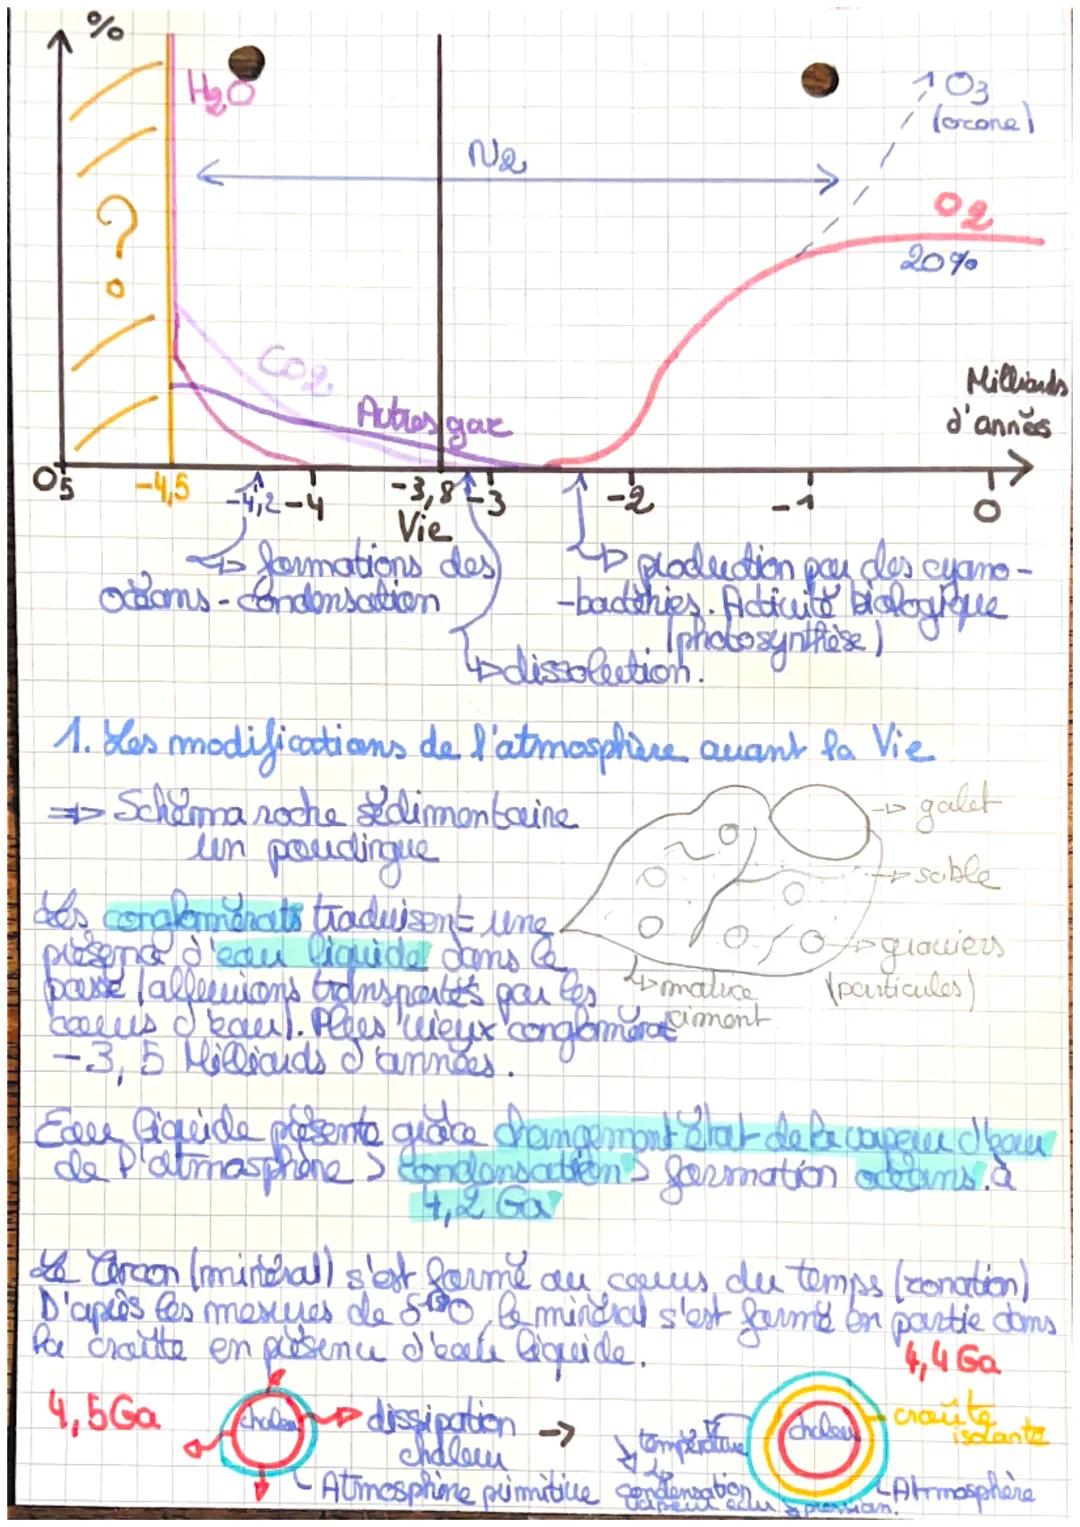 %
H2O
O3
(ozone)
N2
O2
20%
CO2
Autres gaz
Milliards
d'années
?
05
-4,5
-4,2
-4
-3,8
-3
-2
-1
0
Vie
↳ formations des
océans - condensation
↳ production par des cyano-
-bactéries. Activité biologique
(photosynthèse)
↳ dissolution.
1. Les modifications de l'atmosphère avant la Vie
⇒ Schéma roche sédimentaire
un poudingue
→ galet
→ sable
→ graviers
(particules)
↳ matrice
ciment
Les conglomérats traduisent une
présence d'eau liquide dans le
passé (alluvions transportés par les
cours d'eau). Plus vieux conglomérat
-3,5 Milliards d'années.
Eau liquide présente grâce changement état de la vapeur d'eau
de l'atmosphère > condensation > formation océans à
4,2 Ga
Le Zircon (minéral) s'est formé au cours du temps (zonation)
D'après les mesures de δ18O, le minéral s'est formé en partie dans
la croûte en présence d'eau liquide.
4,5 Ga
chaleur
dissipation
chaleur
Atmosphère primitive
→
↘ température
condensation
vapeur eau ↘ pression.
4,4 Ga
chaleur
croûte
isolante
Atmosphère